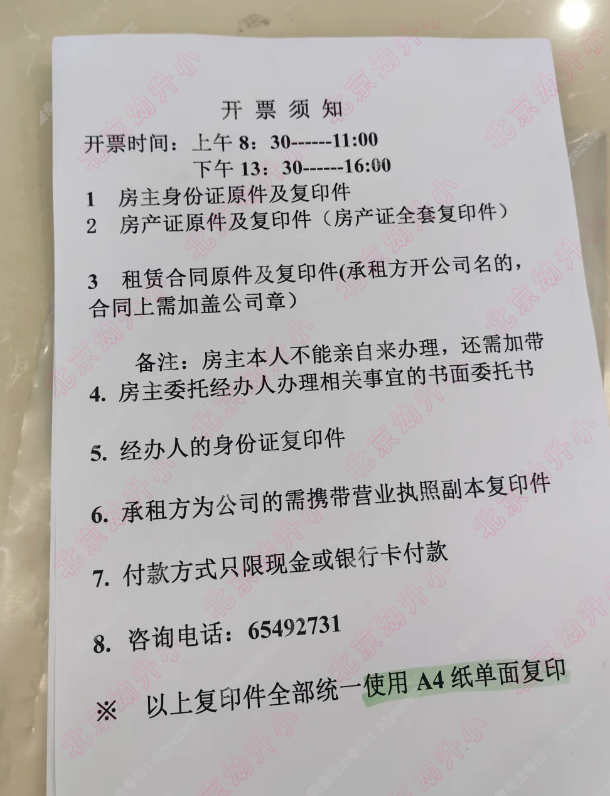 开票须知
开票时间：上午 8：30------11:00
下午 13：30------16:00
1 房主身份证原件及复印件
2 房产证原件及复印件（房产证全套复印件）
3 租赁合同原件及复印件(承租方开公司名的，
合同上需加盖公司章）
备注：房主本人不能亲自来办理，还需加带
4. 房主委托经办人办理相关事宜的书面委托书
5. 经办人的身份证复印件
6. 承租方为公司的需携带营业执照副本复印件
7. 付款方式只限现金或银行卡付款
8. 咨询电话：65492731
※ 以上复印件全部统一使用 A4 纸单面复印
北京幼升小